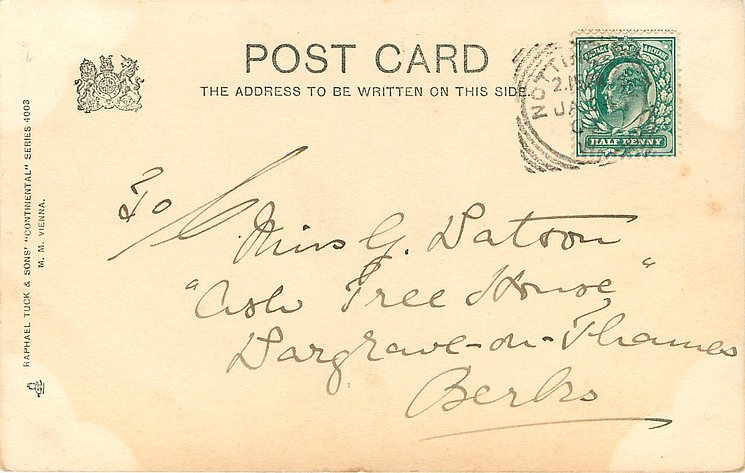 POST CARD
THE ADDRESS TO BE WRITTEN ON THIS SIDE.
NOTTI
JA
POSTAGE & REVENUE
HALF PENNY
RAPHAEL TUCK & SONS' "CONTINENTAL" SERIES 4003
M. M. VIENNA.
To
Miss G. Watson
"Ash Tree House"
Wargrave-on-Thames
Berks